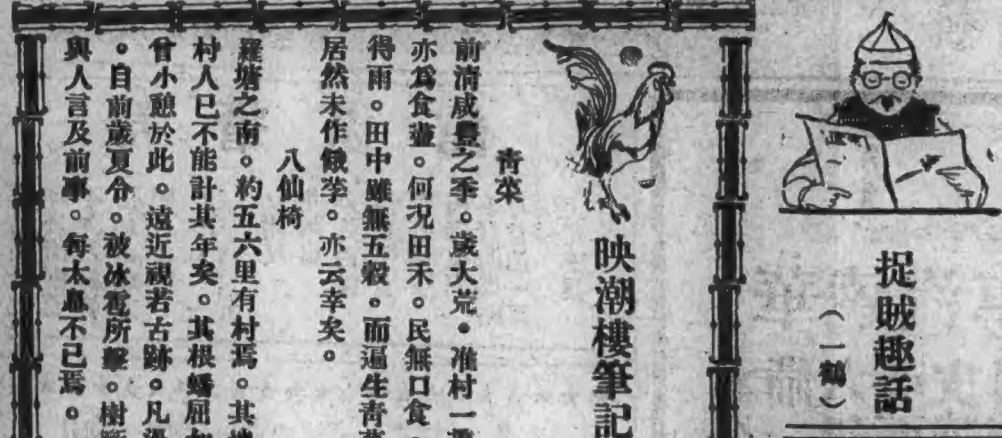 捉賊趣話
（一鶴）
映潮樓筆記
青菜
前清咸豐之季。歲大荒。准村一
亦爲食盡。何況田禾。民無口食。
得雨。田中雖無五穀。而逼生青
居然未作餓莩。亦云幸矣。
八仙椅
羅塘之南。約五六里有村焉。其
村人已不能計其年矣。其根蟠屈
曾小憩於此。遠近視若古跡。凡
。自前歲夏令。被冰雹所擊。樹
與人言及前事。每太息不已焉。